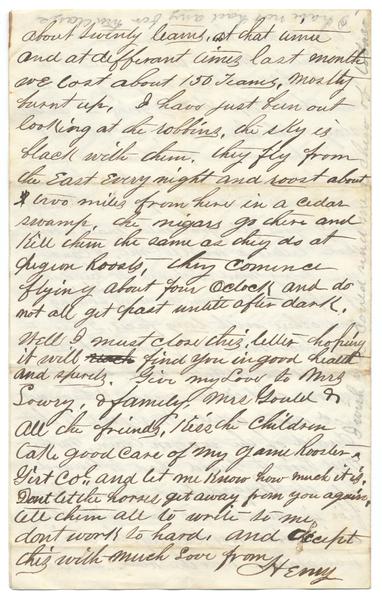 about twenty teams, at that time
and at differant times last month
we lost about 150 Teams, mostly
burnt up, I have just been out
looking at the robbins, the sky is
black with them. they fly from
the East every night and roost about
two miles from here in a cedar
swamp, the nigars go there and
Kill them the same as they do at
pigeon Roosts, they comence
flying about four Oclock and do
not all get past untill after dark.
Well I must close this letter hoping
it will find you in good health
and spirits. Give my Love to Mrs
Lowry, & family, Mrs Gould &
all the friends, Kiss the children
take good care of my Game Rooster
and let me know how much it is.
Dont let the horses get away from you again,
tell them all to write to me
dont work to hard, and Accept
this with much Love from
Henry